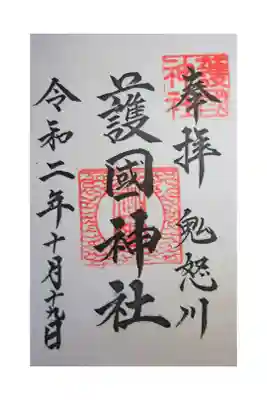 奉拝 鬼怒川
護國神社
令和二年十月十九日